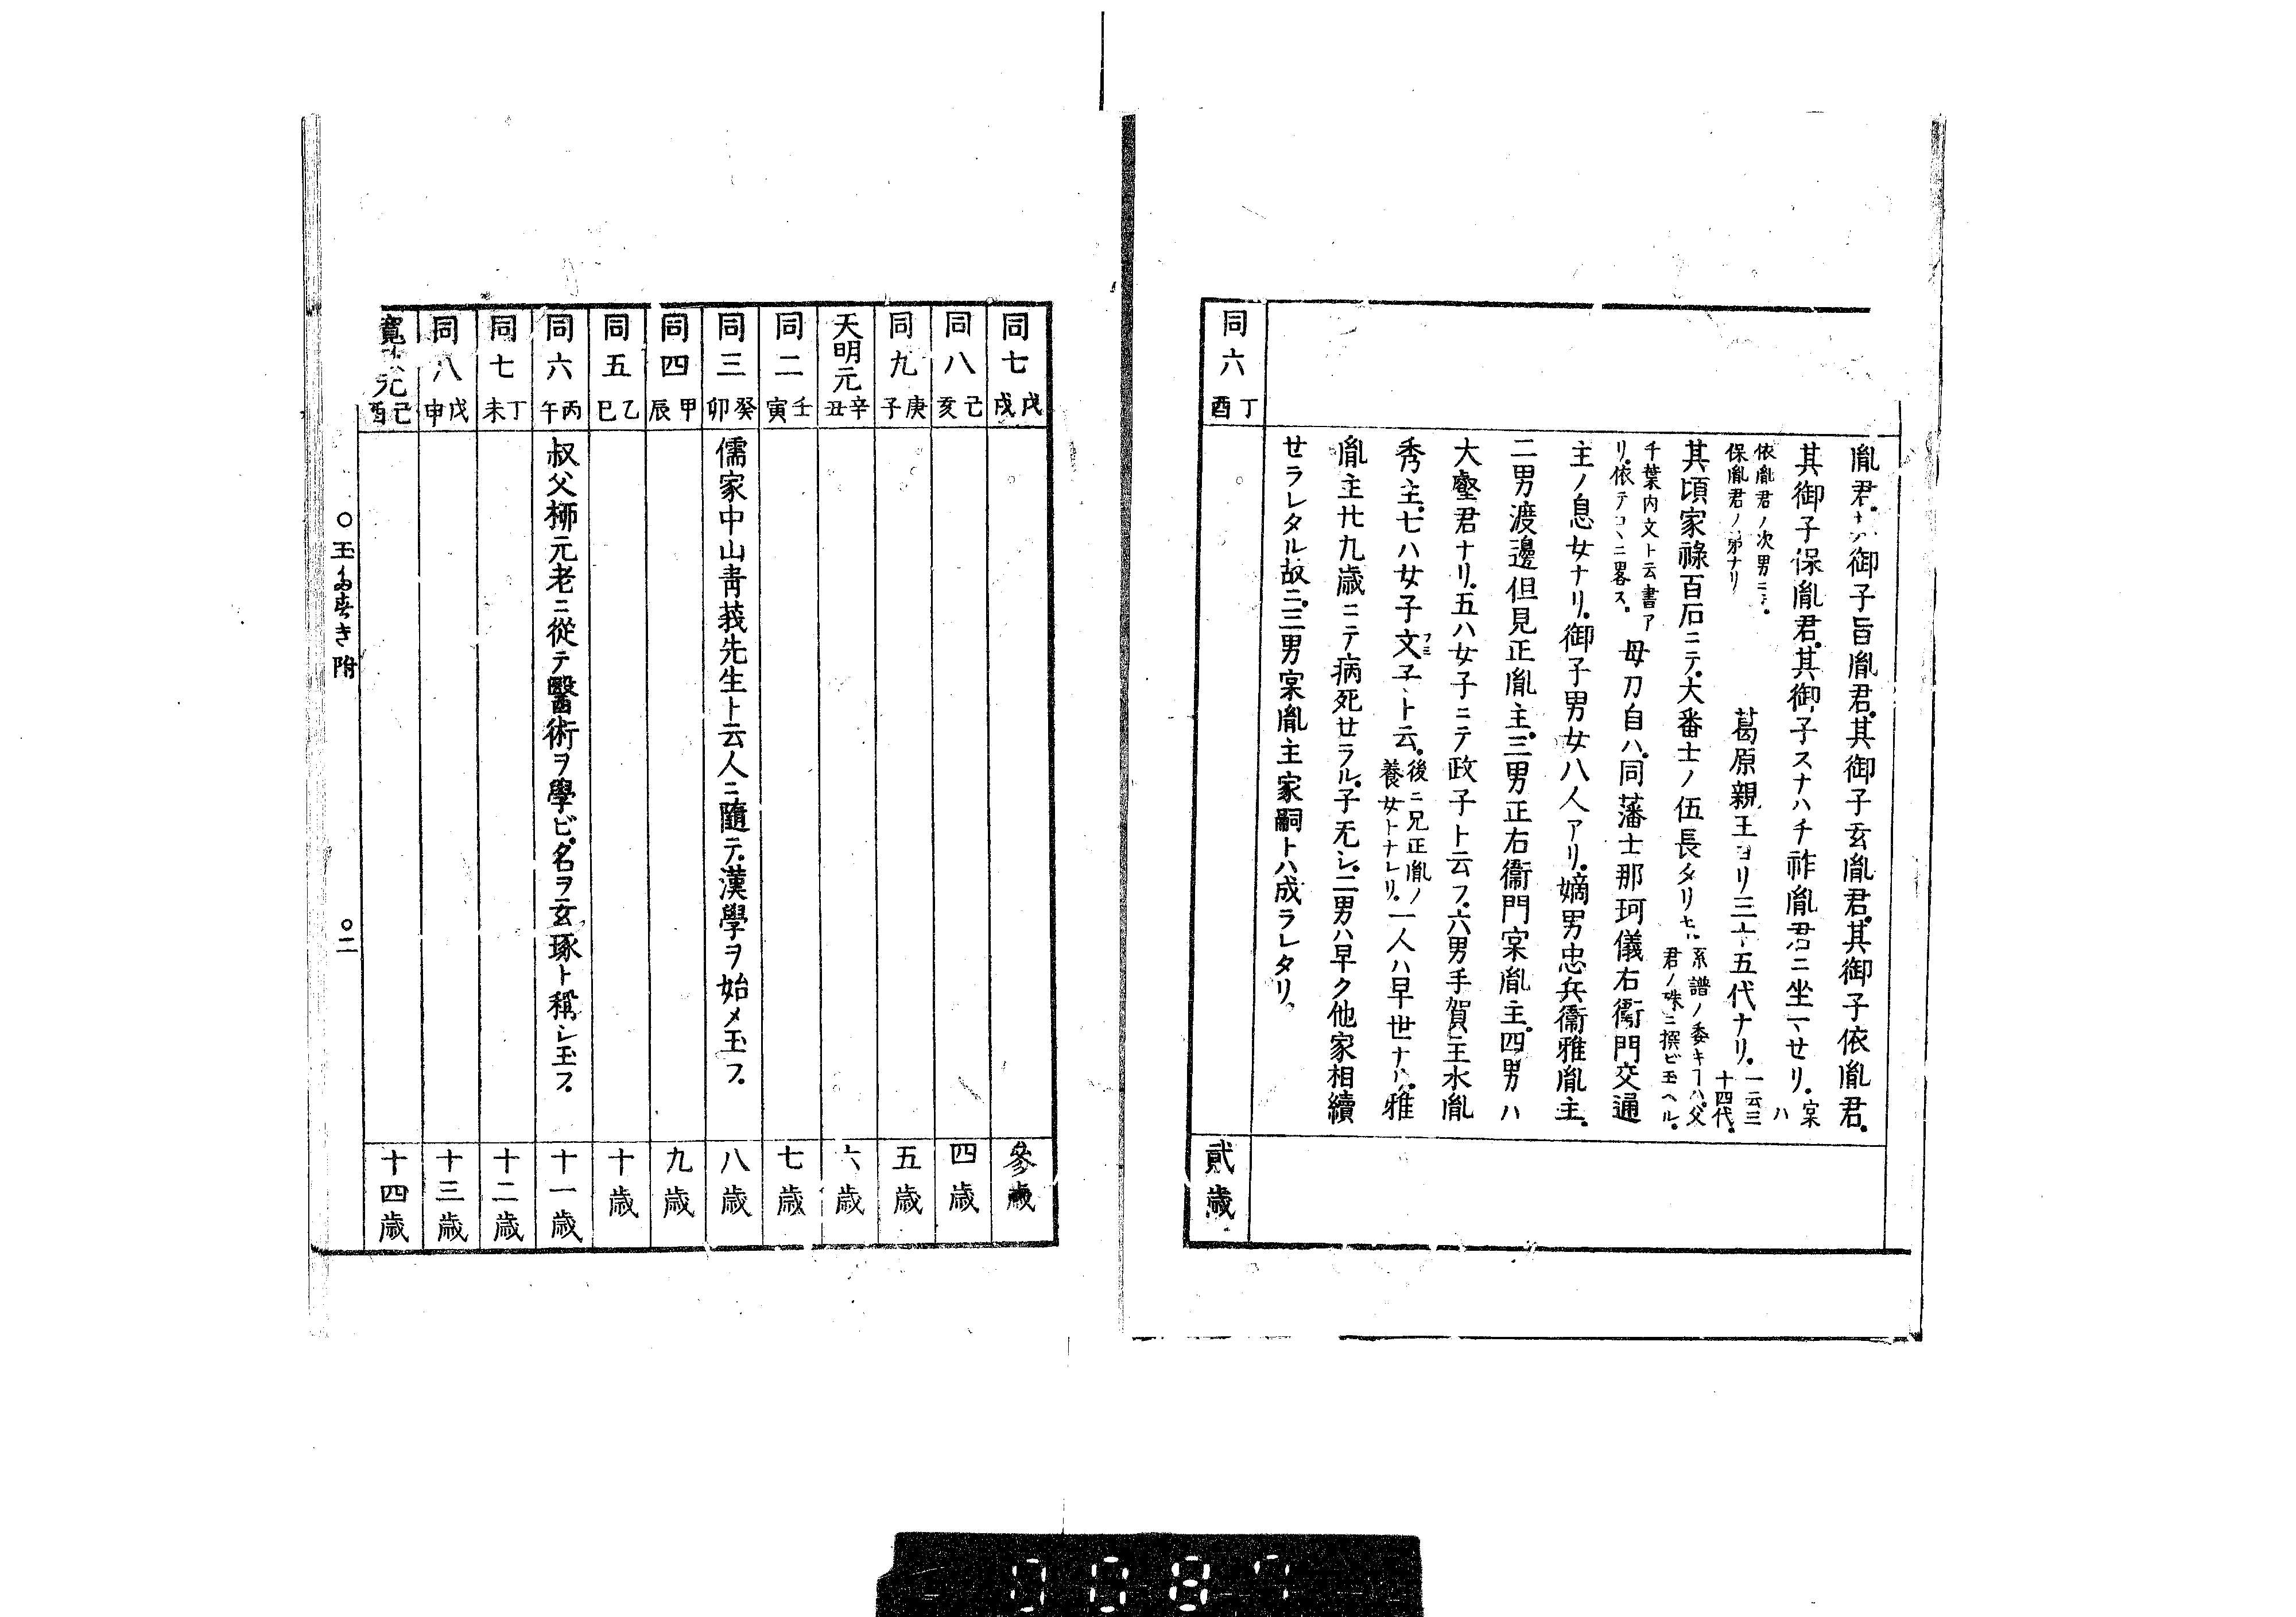 胤君。 御子旨胤君。其御子玄胤君。其御子依胤君。
依胤君ノ次男ニテ。
保胤君ノ弟ナリ
其御子保胤君。其御子スナハチ祚胤君ニ坐マセリ。
宲ハ
葛原親王ヨリ三十五代ナリ。
一云三
十四代。
其頃家祿百石ニテ。大番士ノ伍長タリキ
系譜ノ委キ ハ。父
君ノ 殊ニ撰ビ玉ヘル。
千葉内文ト云書ア
リ。依テコヽニ畧ス。
母刀自ハ。同藩士那珂儀右衞門交通
主ノ息女ナリ。御子男女八人アリ。嫡男忠兵衞雅胤主。
二男渡邊但見正胤主。三男正右衞門宲胤主。四男ハ
大壑君ナリ。五ハ女子ニテ政子ト云フ。六男手賀主水胤
秀主。七ハ女子文子ト云。
フミ
後ニ兄正胤ノ
養女トナレリ。
一人ハ早世ナリ。雅
胤主廿九歳ニテ病死セラル。子无シ。二男ハ早ク他家相續
セラレタル故ニ。三男宲胤主家嗣トハ成ラレタリ。
同六
丁酉
貳歳
同七
戊戌
參歳
同八
己亥
四歳
同九
庚子
五歳
天明元
辛丑
六歳
同二
壬寅
七歳
同三
癸卯
儒家中山靑莪先生ト云人ニ隨テ。漢學ヲ始メ玉フ。
八歳
同四
甲辰
九歳
同五
乙巳
十歳
同六
丙午
叔父柳元老ニ從テ醫術ヲ學ビ。名ヲ玄琢ト稱シ玉フ。
十一歳
同七
丁未
十二歳
同八
戊申
十三歳
寛 元
己酉
十四歳
○玉多すき附
○二